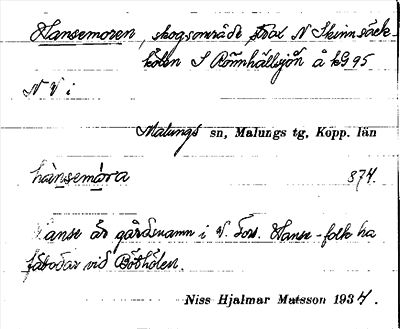 Hansemoren, skogsområde strax N Skinnsäck-
kölen S Römhällsjön å kG 95
N V i
Malungs sn, Malungs tg, Kopp. län
hànsemåra 874.
Hanse är gårdsnamn i V. Fors. Hanse-folk ha
fäbodar vid Böthölen.
Niss Hjalmar Matsson 1934.